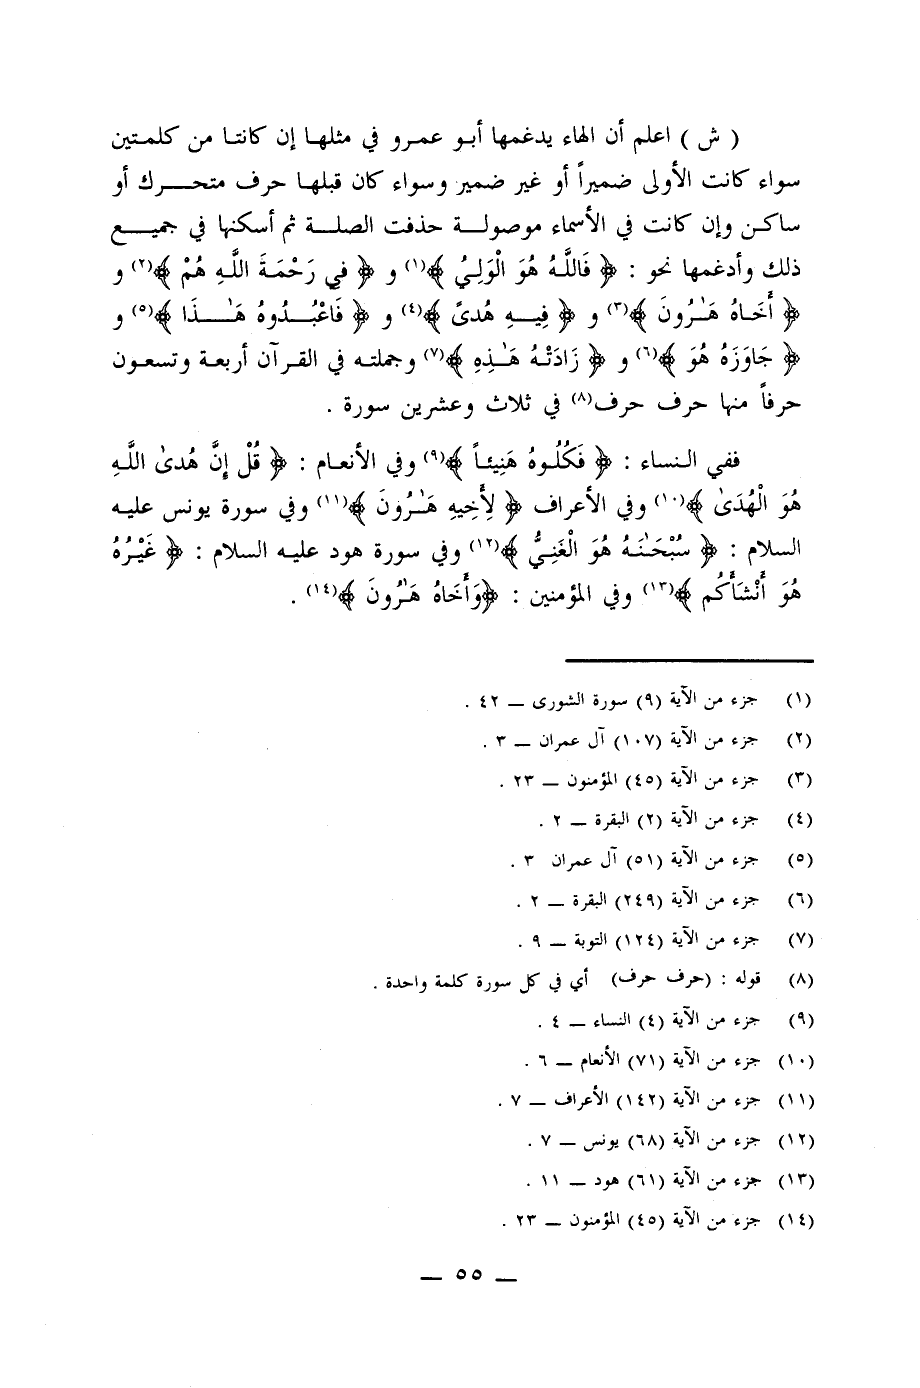 ( ش ) اعلم أن الهاء يدغمها أبو عمرو في مثلها إن كانتا من كلمتين
سواء كانت الأولى ضميراً أو غير ضمير وسواء كان قبلها حرف متحرك أو
ساكن وإن كانت في الأسماء موصولة حذفت الصلة ثم أسكنها في جميع
ذلك وأدغمها نحو : ﴿ فَاللَّهُ هُوَ الْوَلِيُّ ﴾(١) و ﴿ في رَحْمَةَ اللَّهِ هُمْ ﴾(٢) و
﴿ أَخَاهُ هَـٰرُونَ ﴾(٣) و ﴿ فِيهِ هُدىً ﴾(٤) و ﴿ فَاعْبُدُوهُ هَـٰذَا ﴾(٥) و
﴿ جَاوَزَهُ هُوَ ﴾(٦) و ﴿ زَادَتْهُ هَـٰذِهِ ﴾(٧) وجملته في القرآن أربعة وتسعون
حرفاً منها حرف حرف(٨) في ثلاث وعشرين سورة .
ففي النساء : ﴿ فَكُلُوهُ هَنِيئاً ﴾(٩) وفي الأنعام : ﴿ قُلْ إِنَّ هُدىٰ اللَّهِ
هُوَ الْهُدَىٰ ﴾(١٠) وفي الأعراف ﴿ لِأَخِيهِ هَـٰرُونَ ﴾(١١) وفي سورة يونس عليه
السلام : ﴿ سُبْحَـٰنَهُ هُوَ الْغَنِيُّ ﴾(١٢) وفي سورة هود عليه السلام : ﴿ غَيْرُهُ
هُوَ أَنْشَأَكُم ﴾(١٣) وفي المؤمنين : ﴿وَأَخَاهُ هَـٰرُونَ ﴾(١٤) .
(١) جزء من الآية (٩) سورة الشورى ــ ٤٢ .
(٢) جزء من الآية (١٠٧) آل عمران ــ ٣ .
(٣) جزء من الآية (٤٥) المؤمنون ــ ٢٣ .
(٤) جزء من الآية (٢) البقرة ــ ٢ .
(٥) جزء من الآية (٥١) آل عمران ٣ .
(٦) جزء من الآية (٢٤٩) البقرة ــ ٢ .
(٧) جزء من الآية (١٢٤) التوبة ــ ٩ .
(٨) قوله : (حرف حرف) أي في كل سورة كلمة واحدة .
(٩) جزء من الآية (٤) النساء ــ ٤ .
(١٠) جزء من الآية (٧١) الأنعام ــ ٦ .
(١١) جزء من الآية (١٤٢) الأعراف ــ ٧ .
(١٢) جزء من الآية (٦٨) يونس ــ ٧ .
(١٣) جزء من الآية (٦١) هود ــ ١١ .
(١٤) جزء من الآية (٤٥) المؤمنون ــ ٢٣ .
ــ ٥٥ ــ